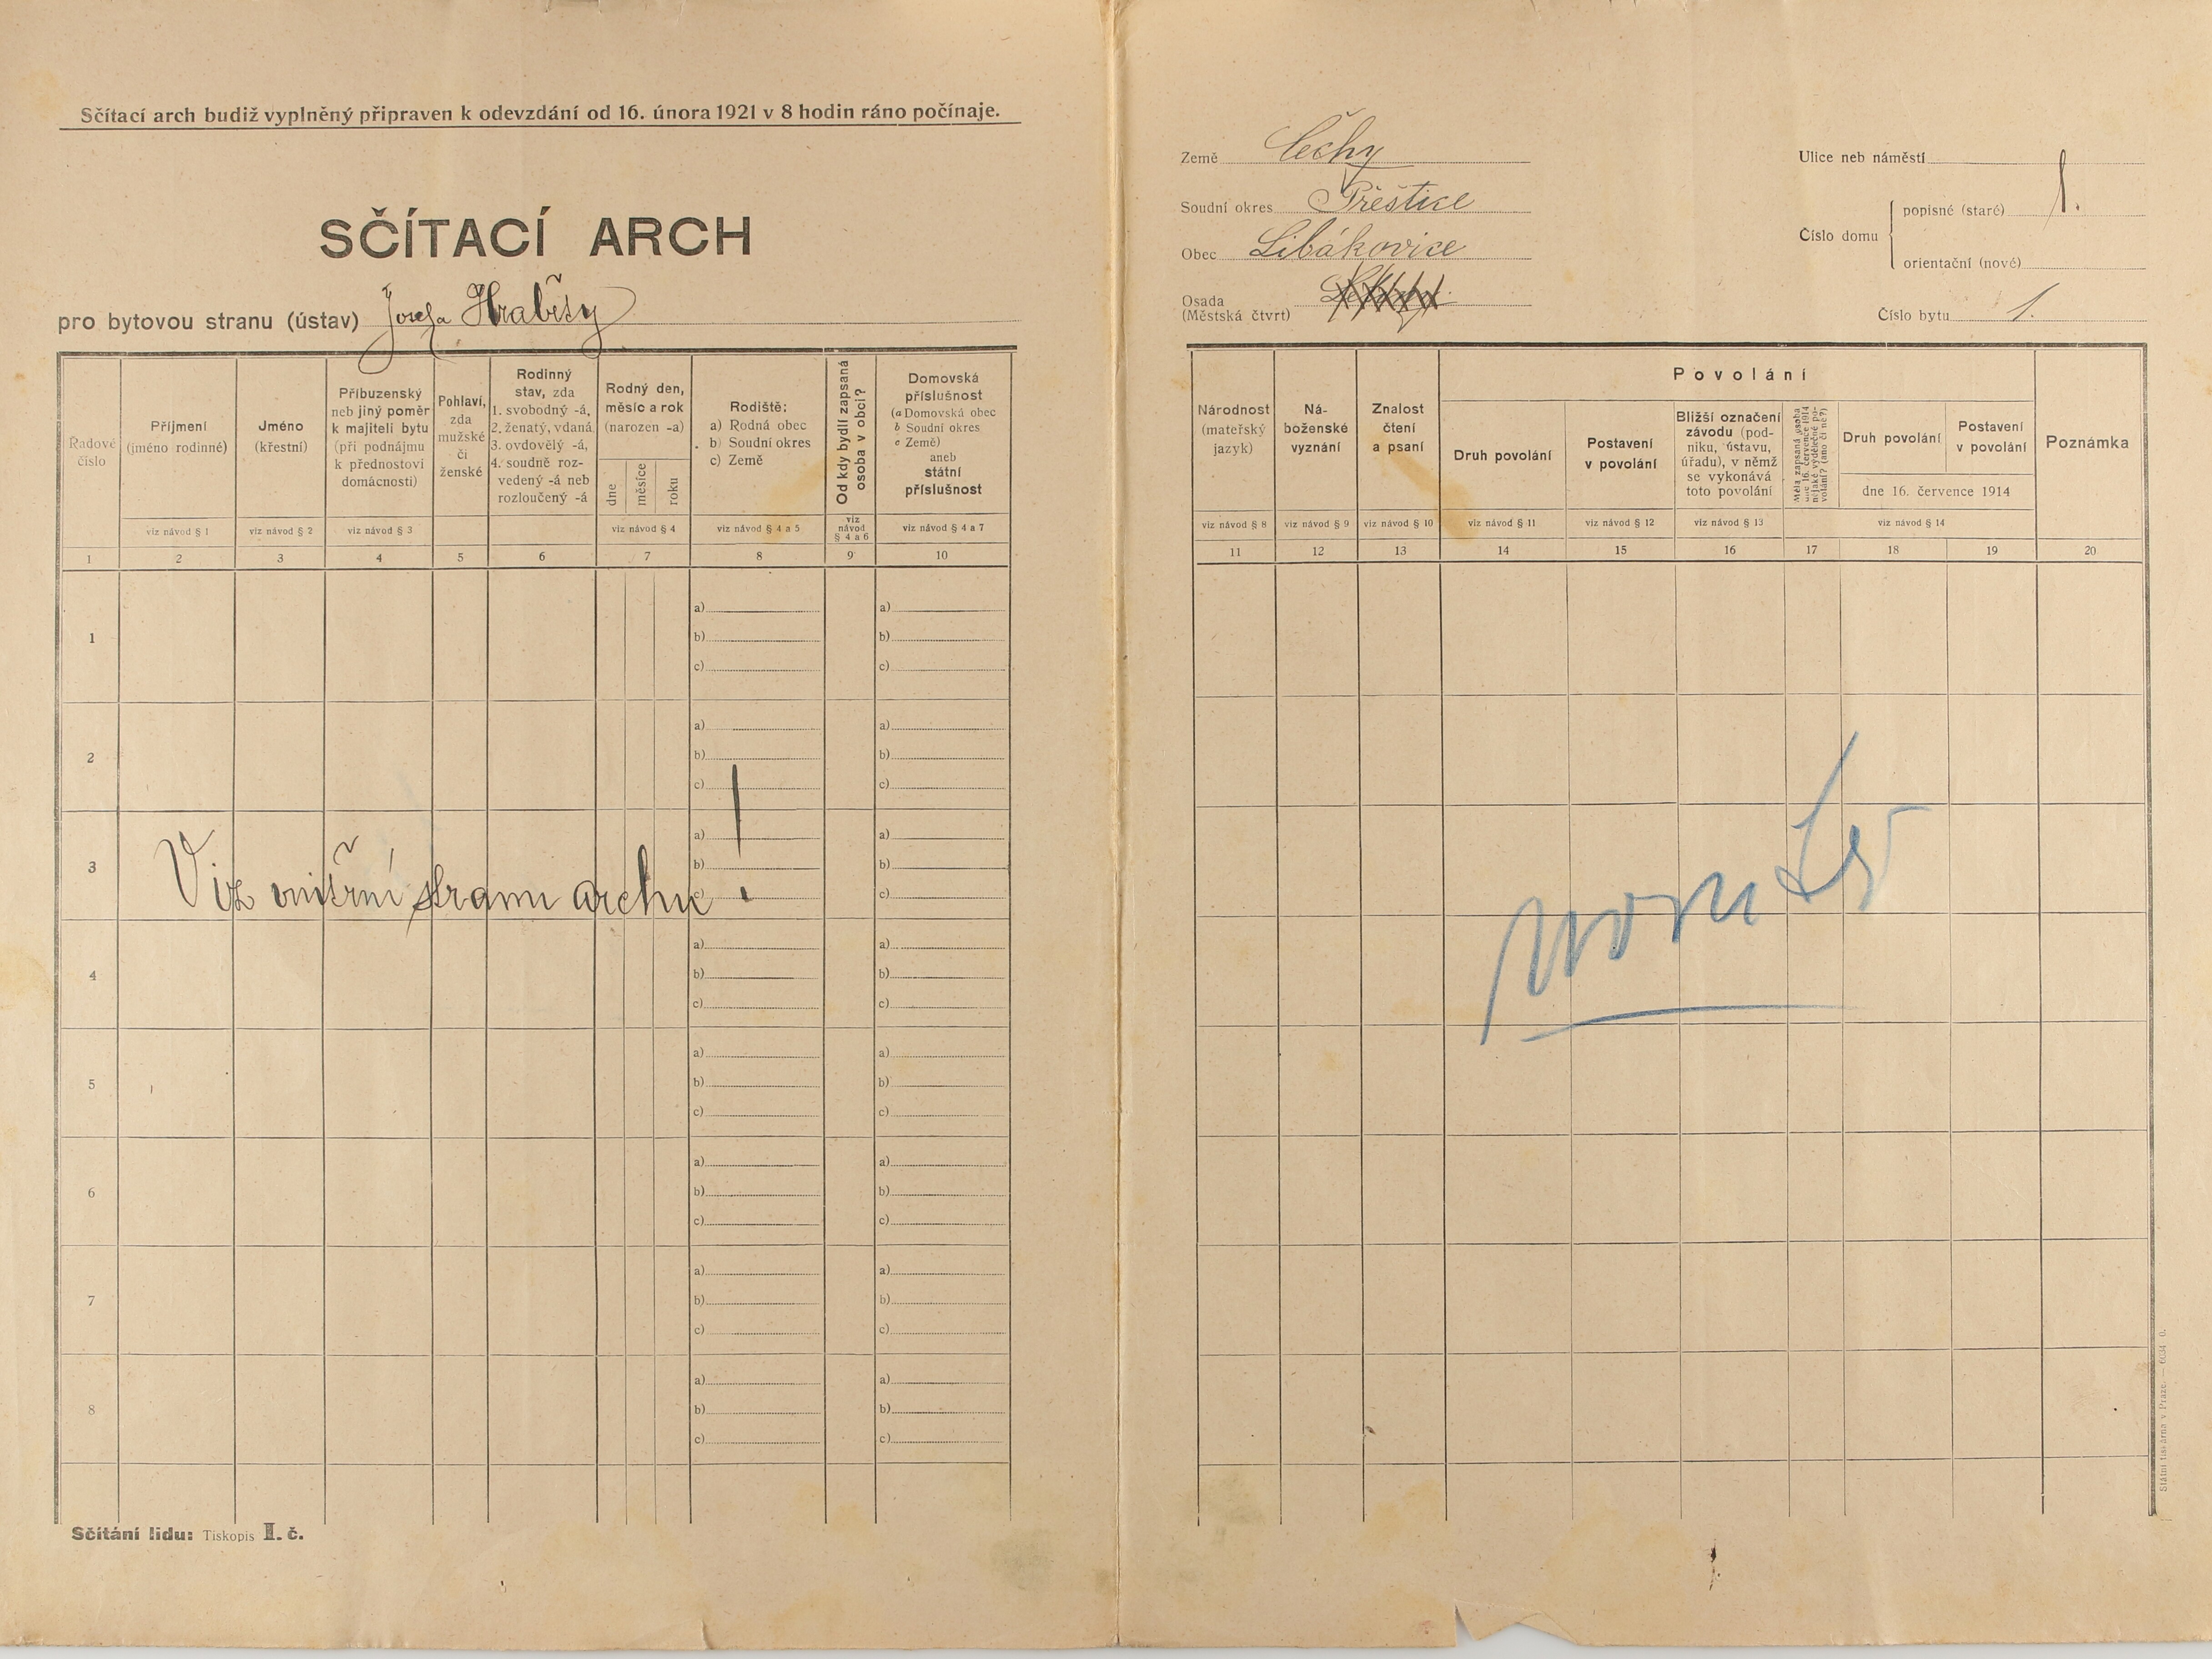 Sčítací arch budiž vyplněný připraven k odevzdání od 16. února 1921 v 8 hodin ráno počínaje.
SČÍTACÍ ARCH
pro bytovou stranu (ústav) Josefa Hraběty
Země Čechy
Soudní okres Přeštice
Obec Libákovice
Osada
(Městská čtvrt)
Ulice neb náměstí
Číslo domu
popisné (staré) 1.
orientační (nové)
Číslo bytu 1.
Řadové číslo
Příjmení (jméno rodinné)
Jméno (křestní)
Příbuzenský neb jiný poměr k majiteli bytu (při podnájmu k přednostovi domácnosti)
Pohlaví, zda mužské či ženské
Rodinný stav, zda 1. svobodný -á, 2. ženatý, vdaná 3. ovdovělý -á, 4. soudně rozvedený -á neb rozloučený -á
Rodný den, měsíc a rok (narozen -a)
dne měsíce roku
Rodiště: a) Rodná obec b) Soudní okres c) Země
Od kdy bydlí zapsaná osoba v obci?
Domovská příslušnost (a Domovská obec b Soudní okres c Země) aneb státní příslušnost
viz návod § 1
viz návod § 2
viz návod § 3
viz návod § 4
viz návod § 4 a 5
viz návod § 4 a 6
viz návod § 4 a 7
1 2 3 4 5 6 7 8 9 10
Národnost (mateřský jazyk)
Náboženské vyznání
Znalost čtení a psaní
Povolání
Druh povolání
Postavení v povolání
Bližší označení závodu (podniku, ústavu, úřadu), v němž se vykonává toto povolání
Měla zapsaná osoba dne 16. července 1914 nějaké výdělečné povolání? (ano či ne?)
Druh povolání
Postavení v povolání
dne 16. července 1914
Poznámka
viz návod § 8
viz návod § 9
viz návod § 10
viz návod § 11
viz návod § 12
viz návod § 13
viz návod § 14
11 12 13 14 15 16 17 18 19 20
1 a) b) c) a) b) c)
2 a) b) c) a) b) c)
3 a) b) c) a) b) c)
Viz vnitřní stranu archu!
4 a) b) c) a) b) c)
5 a) b) c) a) b) c)
6 a) b) c) a) b) c)
7 a) b) c) a) b) c)
8 a) b) c) a) b) c)
Sčítání lidu: Tiskopis II. č.
Státní tiskárna v Praze. — 6034 0.